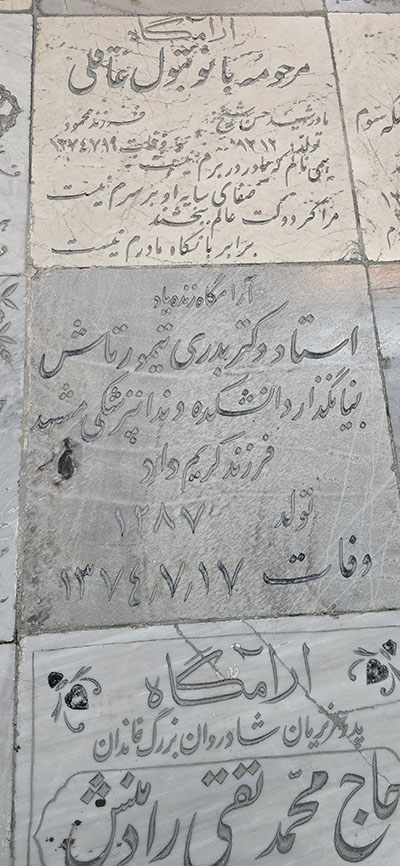 آرامگاه
مرحومه بانو بتول عاقلی
مادر شهید حسن شیخ
فرزند محمود
تولد ۱۳۱۲
وفات ۱۳۷۴٫۷٫۱۹
همی نالم که مادر در برم نیست
صفای سایه او بر سرم نیست
مرا گر دولت عالم ببخشند
برابر با نگاه مادرم نیست
آرامگاه زنده یاد
استاد دکتر بدری تیمورتاش
بنیانگذار دانشکده دندانپزشکی مشهد
فرزند کریم داد
تولد ۱۲۸۷
وفات ۱۳۷۴٫۷٫۱۷
آرامگاه
پدر عزیزمان شادروان بزرگ خاندان
حاج محمد تقی رادمنش
که سوم